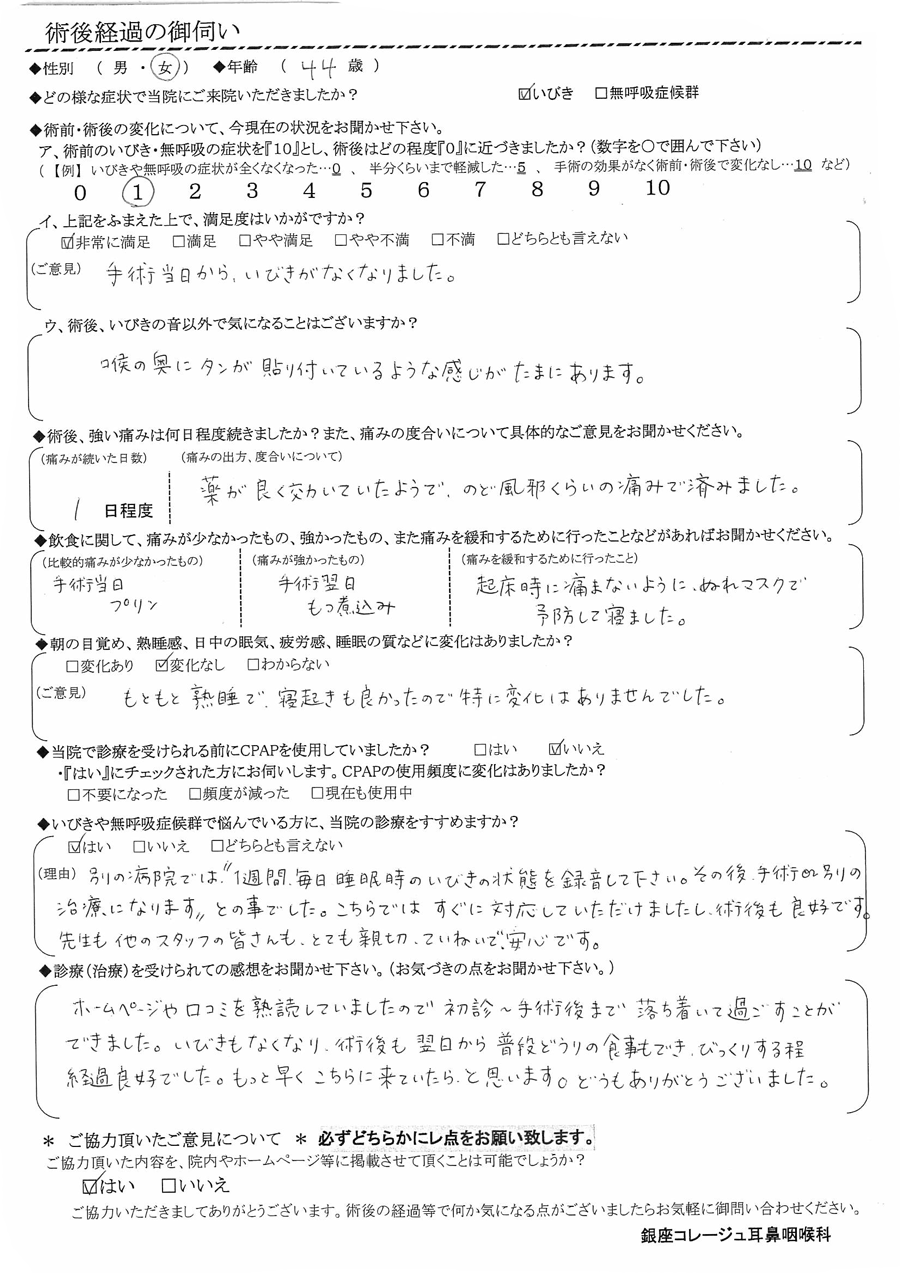 術後経過の御伺い
◆性別 ( 男 ・ 女 ) ◆年齢 ( 44 歳 )
◆どの様な症状で当院にご来院いただきましたか? ☑いびき □無呼吸症候群
◆術前・術後の変化について、今現在の状況をお聞かせ下さい。
ア、術前のいびき・無呼吸の症状を『10』とし、術後はどの程度『0』に近づきましたか?(数字を○で囲んで下さい)
(【例】いびきや無呼吸の症状が全くなくなった…0 、 半分くらいまで軽減した…5 、 手術の効果がなく術前・術後で変化なし…10 など)
0 1 2 3 4 5 6 7 8 9 10
イ、上記をふまえた上で、満足度はいかがですか?
☑非常に満足 □満足 □やや満足 □やや不満 □不満 □どちらとも言えない
(ご意見) 手術当日から、いびきがなくなりました。
ウ、術後、いびきの音以外で気になることはございますか?
喉の奥にタンが貼り付いているような感じがたまにあります。
◆術後、強い痛みは何日程度続きましたか?また、痛みの度合いについて具体的なご意見をお聞かせください。
(痛みが続いた日数) (痛みの出方、度合いについて)
1 日程度 薬が良く効いていたようで、のど風邪くらいの痛みで済みました。
◆飲食に関して、痛みが少なかったもの、強かったもの、また痛みを緩和するために行ったことなどがあればお聞かせください。
(比較的痛みが少なかったもの) (痛みが強かったもの) (痛みを緩和するために行ったこと)
手術当日 手術翌日 起床時に痛まないように、ぬれマスクで
プリン もつ煮込み 予防して寝ました。
◆朝の目覚め、熟睡感、日中の眠気、疲労感、睡眠の質などに変化はありましたか?
□変化あり ☑変化なし □わからない
(ご意見) もともと熟睡で、寝起きも良かったので特に変化はありませんでした。
◆当院で診療を受けられる前にCPAPを使用していましたか? □はい ☑いいえ
・『はい』にチェックされた方にお伺いします。CPAPの使用頻度に変化はありましたか?
□不要になった □頻度が減った □現在も使用中
◆いびきや無呼吸症候群で悩んでいる方に、当院の診療をすすめますか?
☑はい □いいえ □どちらとも言えない
(理由) 別の病院では〝1週間、毎日睡眠時のいびきの状態を録音して下さい。その後、手術or別の
治療になります〟との事でした。こちらではすぐに対応していただけましたし、術後も良好です。
先生も他のスタッフの皆さんも、とても親切、ていねいで、安心です。
◆診療(治療)を受けられての感想をお聞かせ下さい。(お気づきの点をお聞かせ下さい。)
ホームページや口コミを熟読していましたので初診～手術後まで落ち着いて過ごすことが
できました。いびきもなくなり、術後も翌日から普段どうりの食事もでき、びっくりする程
経過良好でした。もっと早くこちらに来ていたら、と思います。どうもありがとうございました。
＊ ご協力頂いたご意見について ＊ 必ずどちらかにレ点をお願い致します。
ご協力頂いた内容を、院内やホームページ等に掲載させて頂くことは可能でしょうか?
☑はい □いいえ
ご協力いただきましてありがとうございます。術後の経過等で何か気になる点がございましたらお気軽に御問い合わせください。
銀座コレージュ耳鼻咽喉科